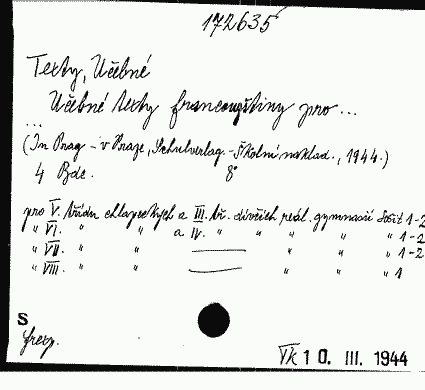 172635
Texty, Učebné
Učebné texty francouzštiny pro ...
...
(In Prag - v Praze, Schulverlag - Školní naklad., 1944.)
4 Bde. 8°
pro V. třídu chlapeckých a III. tř. dívčích reál. gymnasií Sešit 1-2
" VI. " " a IV. " " " " " 1-2
" VII. " " —— " " " 1-2
" VIII. " " —— " " " 1
S
VK 10. III. 1944